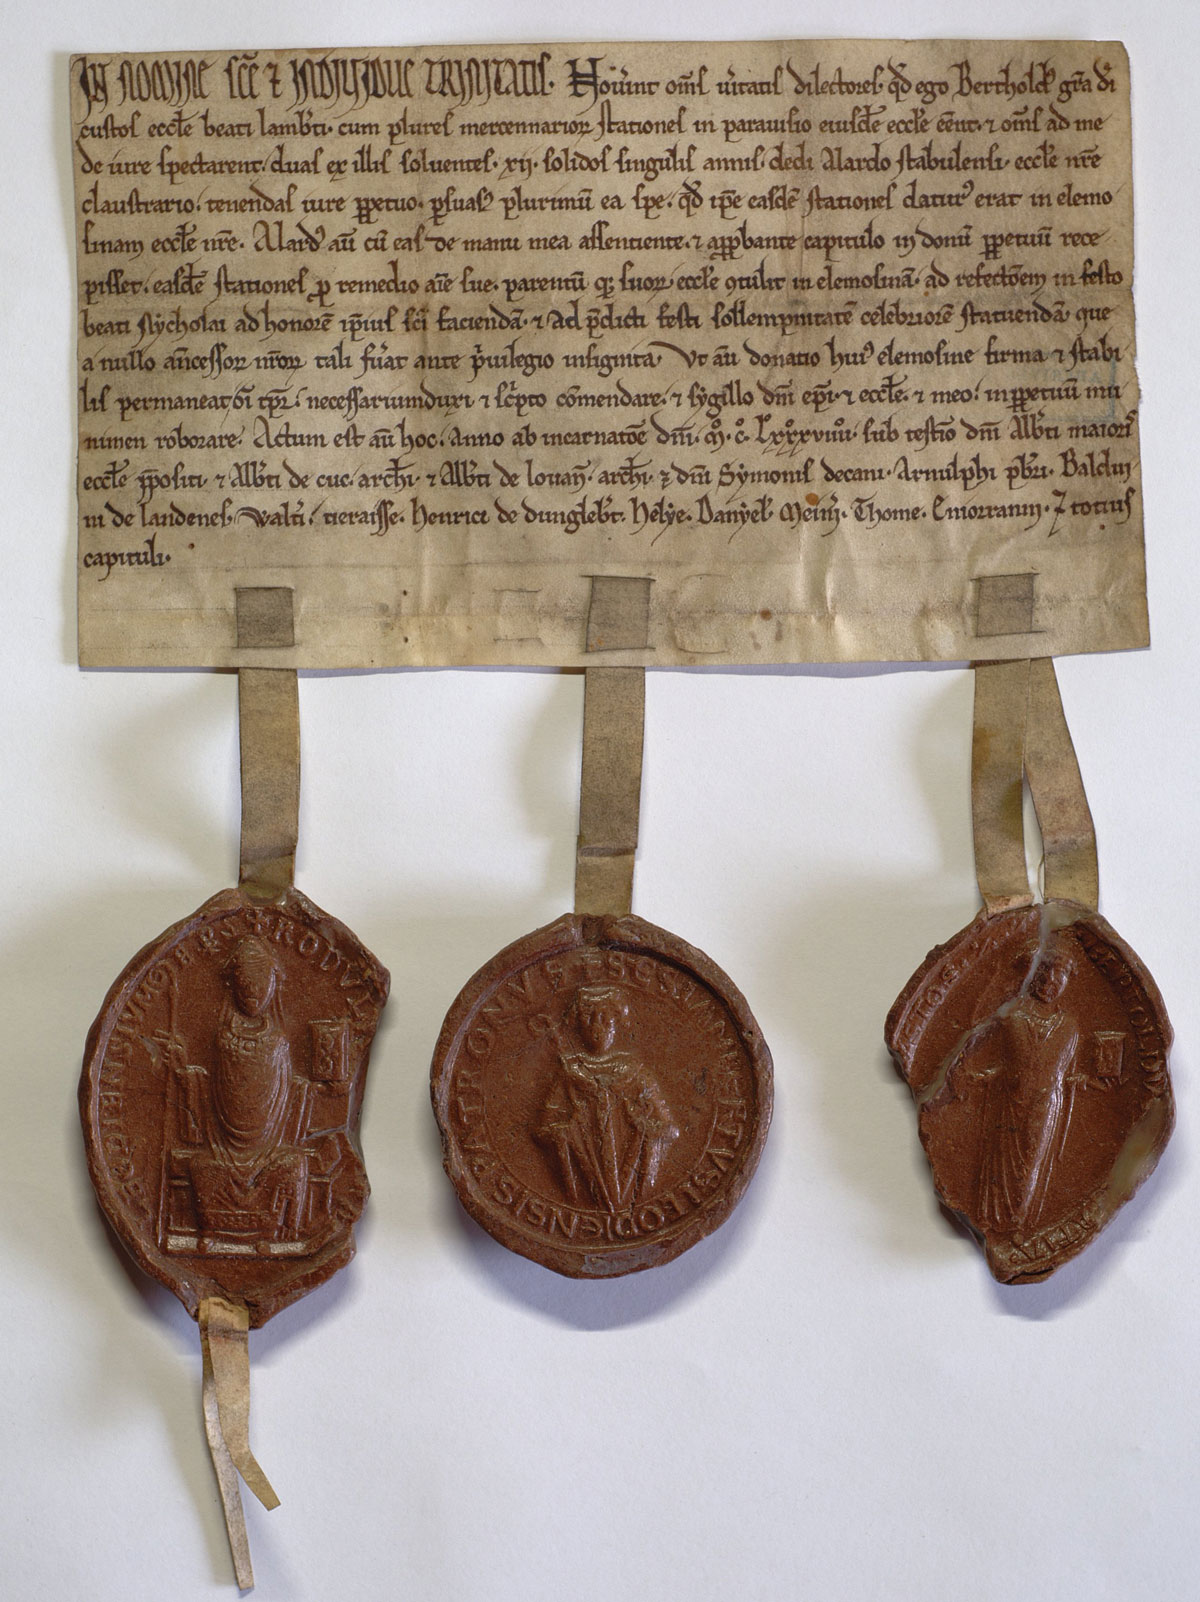 IN NOMINE SCE 7 INDIVIDUE TRINITATIS. Nov̄int om̄s v̄itatis dilectores. qd̄ ego Berthold' gr̄a di
custos eccl̄e beati lamb̄ti. cum plures mercennarioꝝ stationes in paravisio eiusdē eccl̄e eēnt. ⁊ om̄s ad me
de iure spectarent. duas ex illis solventes. xij. solidos singulis annis. dedi Alardo stabulensi. eccl̄e nr̄e
claustrario. tenendas iure ꝑpetuo. ꝑsuasꝰ plurimū ea spe. qd̄ ip̄e easdē stationes daturꝰ erat in elemo
sinam eccl̄e nr̄e. Alardꝰ aū cū eas de manu mea assentiente. ⁊ apꝓbante capitulo in donū ꝑpetuū rece
pisset. easdē stationes ꝓ remedio aīe sue. parentū qꝫ suoꝝ. eccl̄e ꝯtulit in elemosinā. ad refectōem in festo
beati Nycholai ad honorē ip̄ius sc̄i faciendā. ⁊ ad p̄dicti festi sollempnitatē celebriorē statuendā. que
a nullo an̄cessoꝝ nr̄oꝝ tali fu̅at ante p̄vilegio insignita. Vt aū donatio huiꝰ elemosine firma ⁊ stabi
lis permaneat oī tp̄r. necessarium duxi ⁊ sc̄pto cōmendare. ⁊ sygillo dn̄i ep̄i. ⁊ eccl̄e. ⁊ meo. in ꝑpetuū mu
nimen roborare. Actum est aū hoc. Anno ab incarnatōe dn̄i. M̊. c̊. Lxxxviii̊. sub testīo dn̄i Alb̄ti maioris
eccl̄e p̄positi. ⁊ Alb̄ti de cuc. arch̄i. ⁊ Alb̄ti de lovan̄. arch̄i. ⁊ dn̄i Symonis decani. Arnulphi pb̄ri. Baldui
ni de landenes. walt̄i. tieraisse. henrici de dungleb̄t. helye. Danyel'. Thome. Emorranni. ⁊ totius
capituli.
PATRONVS + SCS LAMBERTVS LEODIENSIS